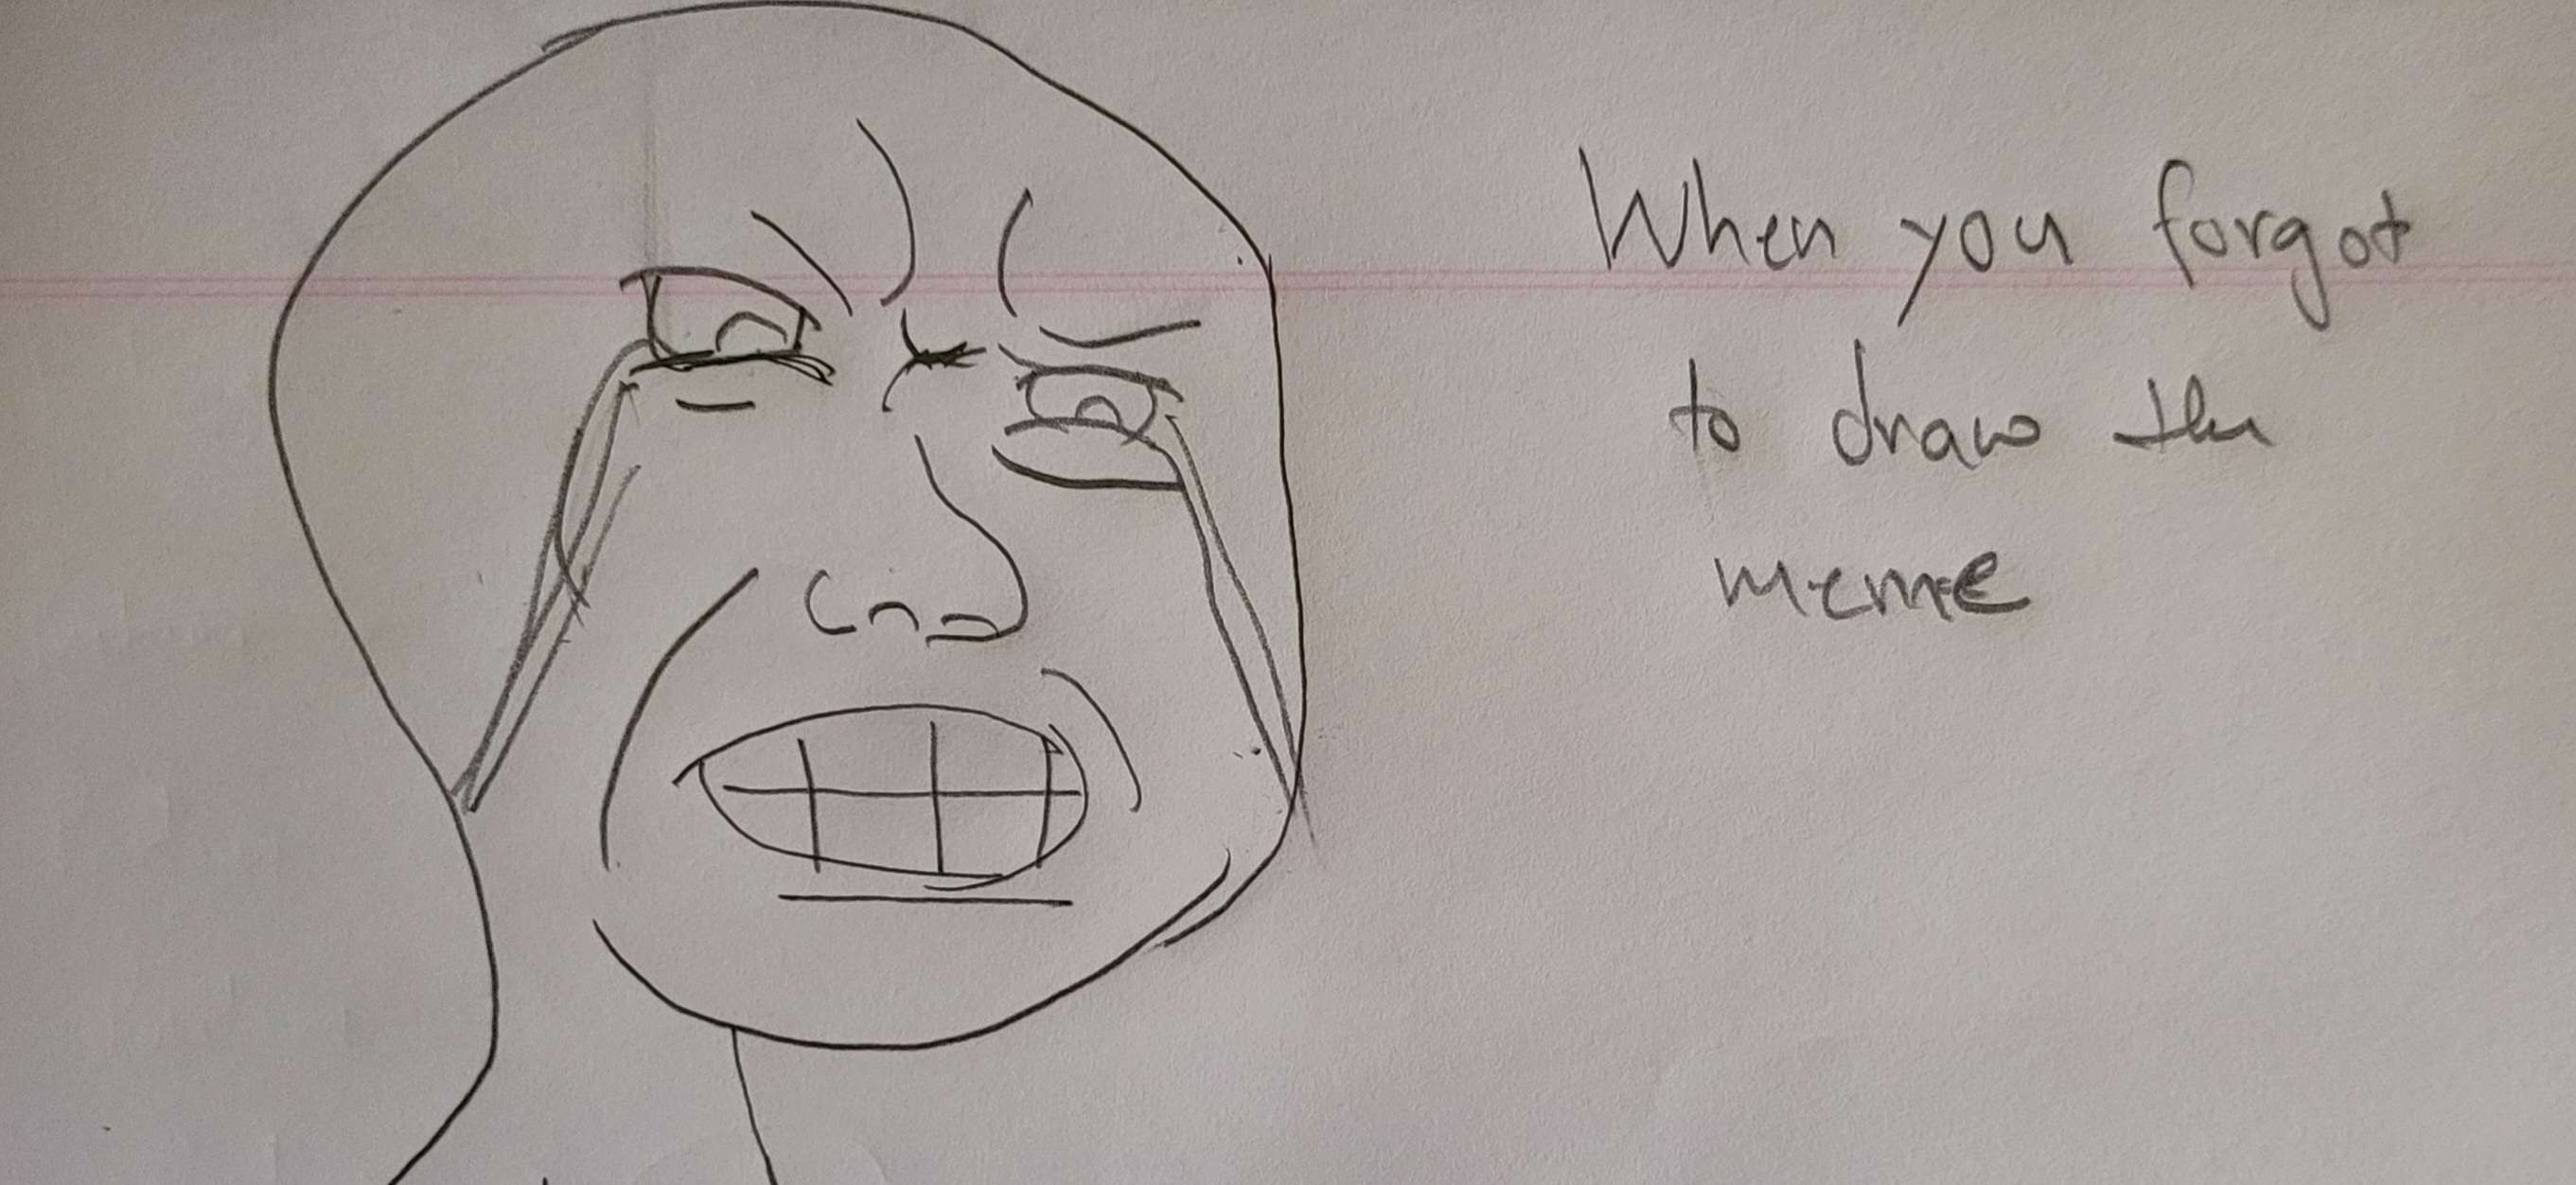 When you forgot
to draw the
meme